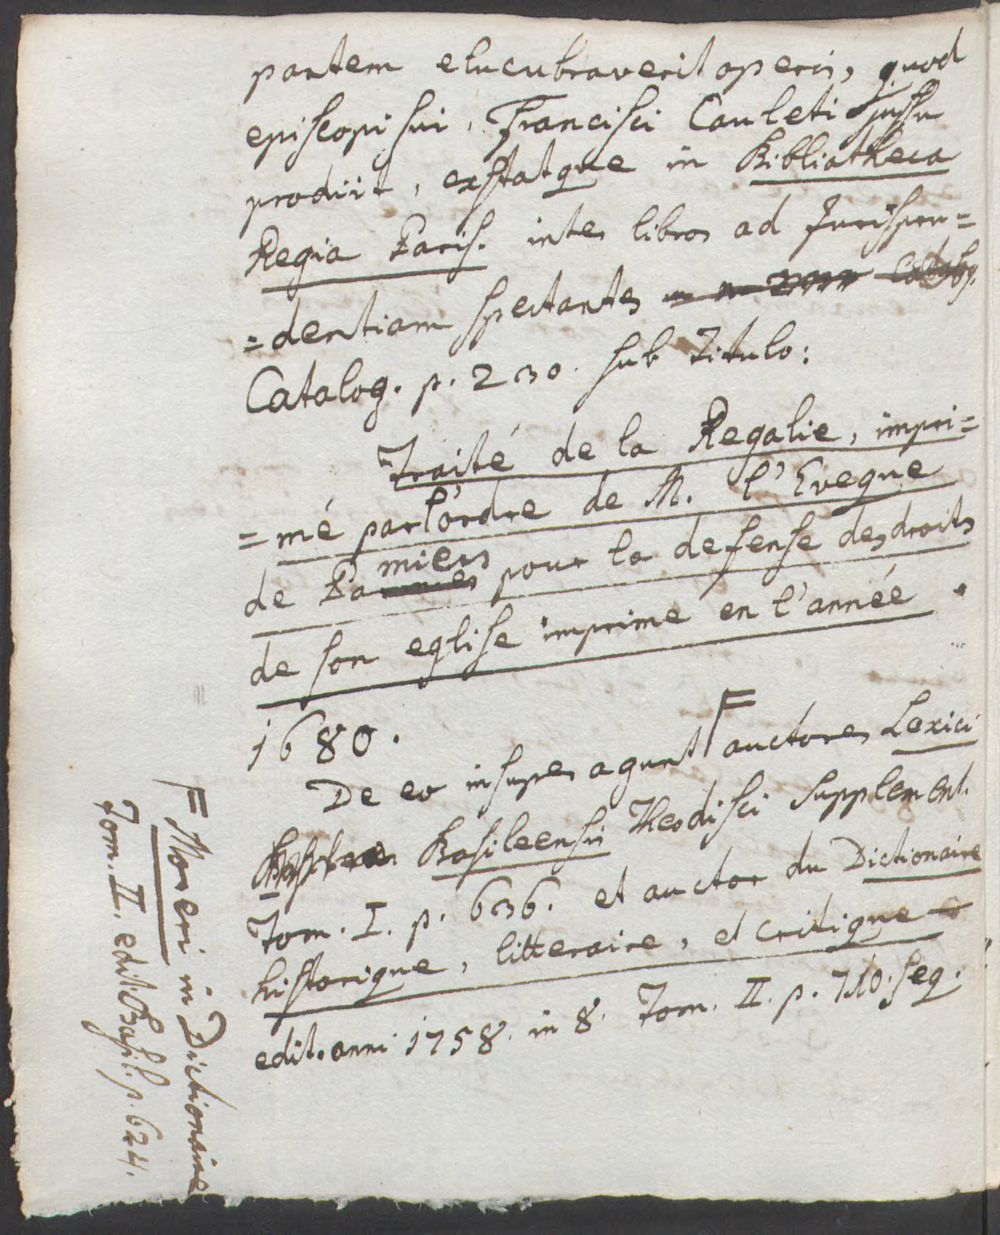 partem elucubraverit operis, quod
episcopi sui, Francisci Cauleti jussu
prodiit, exstatque in Bibliotheca
Regia Paris. inter libros ad Jurispru=
=dentiam spectantes
Catalog. p. 230. sub titulo:
Traité de la Regalie, impri=
=mé par l'ordre de M. l'Eveque
de Pamiers pour la defense des droits
de son eglise imprime en l'année
1680.
De eo insuper agunt F auctores Lexici
Basileensis Theodisci Supplement.
Tom. I. p. 636. et auctor du Dictionaire
historique, litteraire, et critique
edit. anni 1758. in 8. Tom. II. p. 710. seq.
F Moreri in Dictionaire
Tom. II. edit. Basil. p. 624.